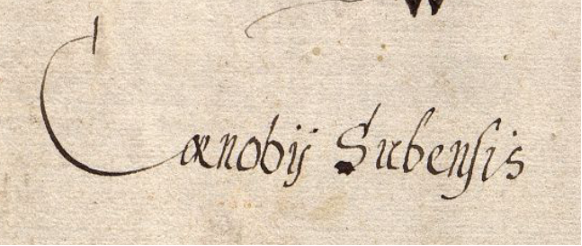 Cœnobij Subensis